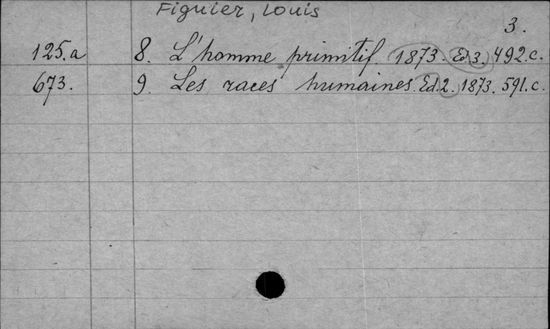 Figuier, Louis
3.
125.a 8. L'homme primitif 1873. Ed 3. 492.c.
673. 9. Les races humaines. Ed. 2. 1873. 591.c.